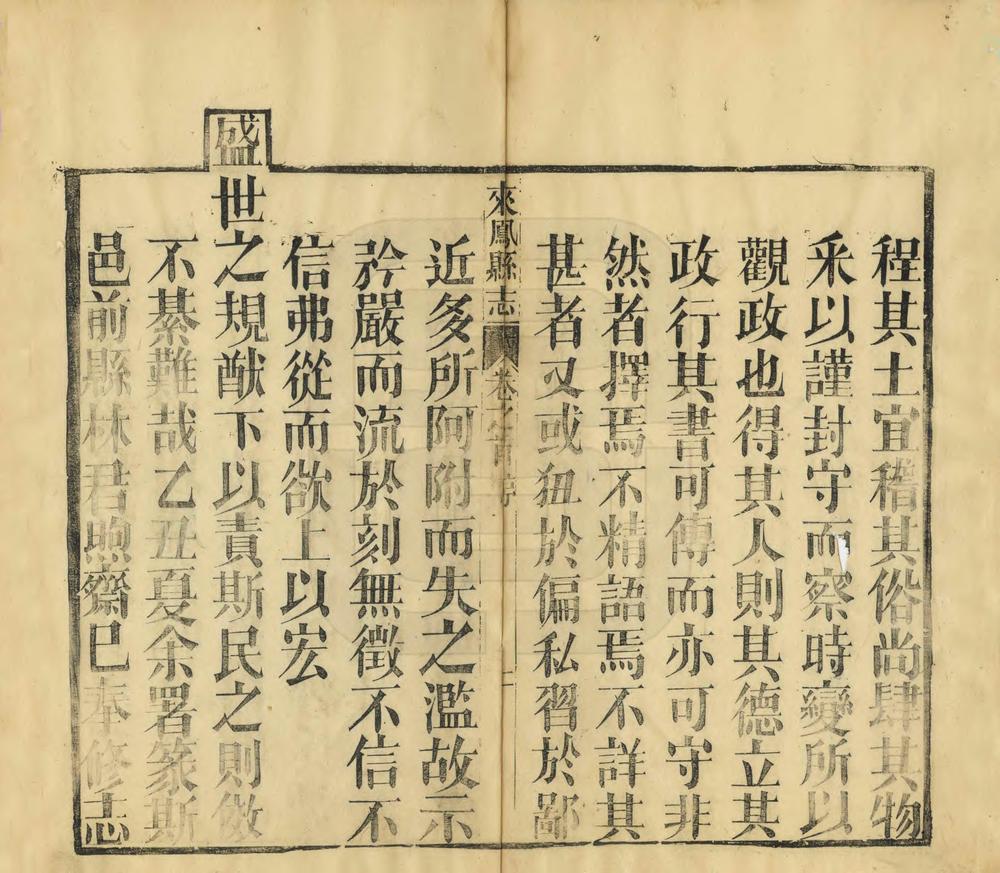 程其土宜稽其俗尚肆其物
采以謹封守而察時變所以
觀政也得其人則其德立其
政行其書可傳而亦可守非
然者擇焉不精語焉不詳其
甚者又或狃於偏私習於鄙
來鳳縣志 卷之首 序
近多所阿附而失之濫故示
矜嚴而流於刻無徵不信不
信弗從而欲上以宏
盛世之規猷下以責斯民之則傚
不綦難哉乙丑夏余署篆斯
邑前縣林君煦齋已奉修志